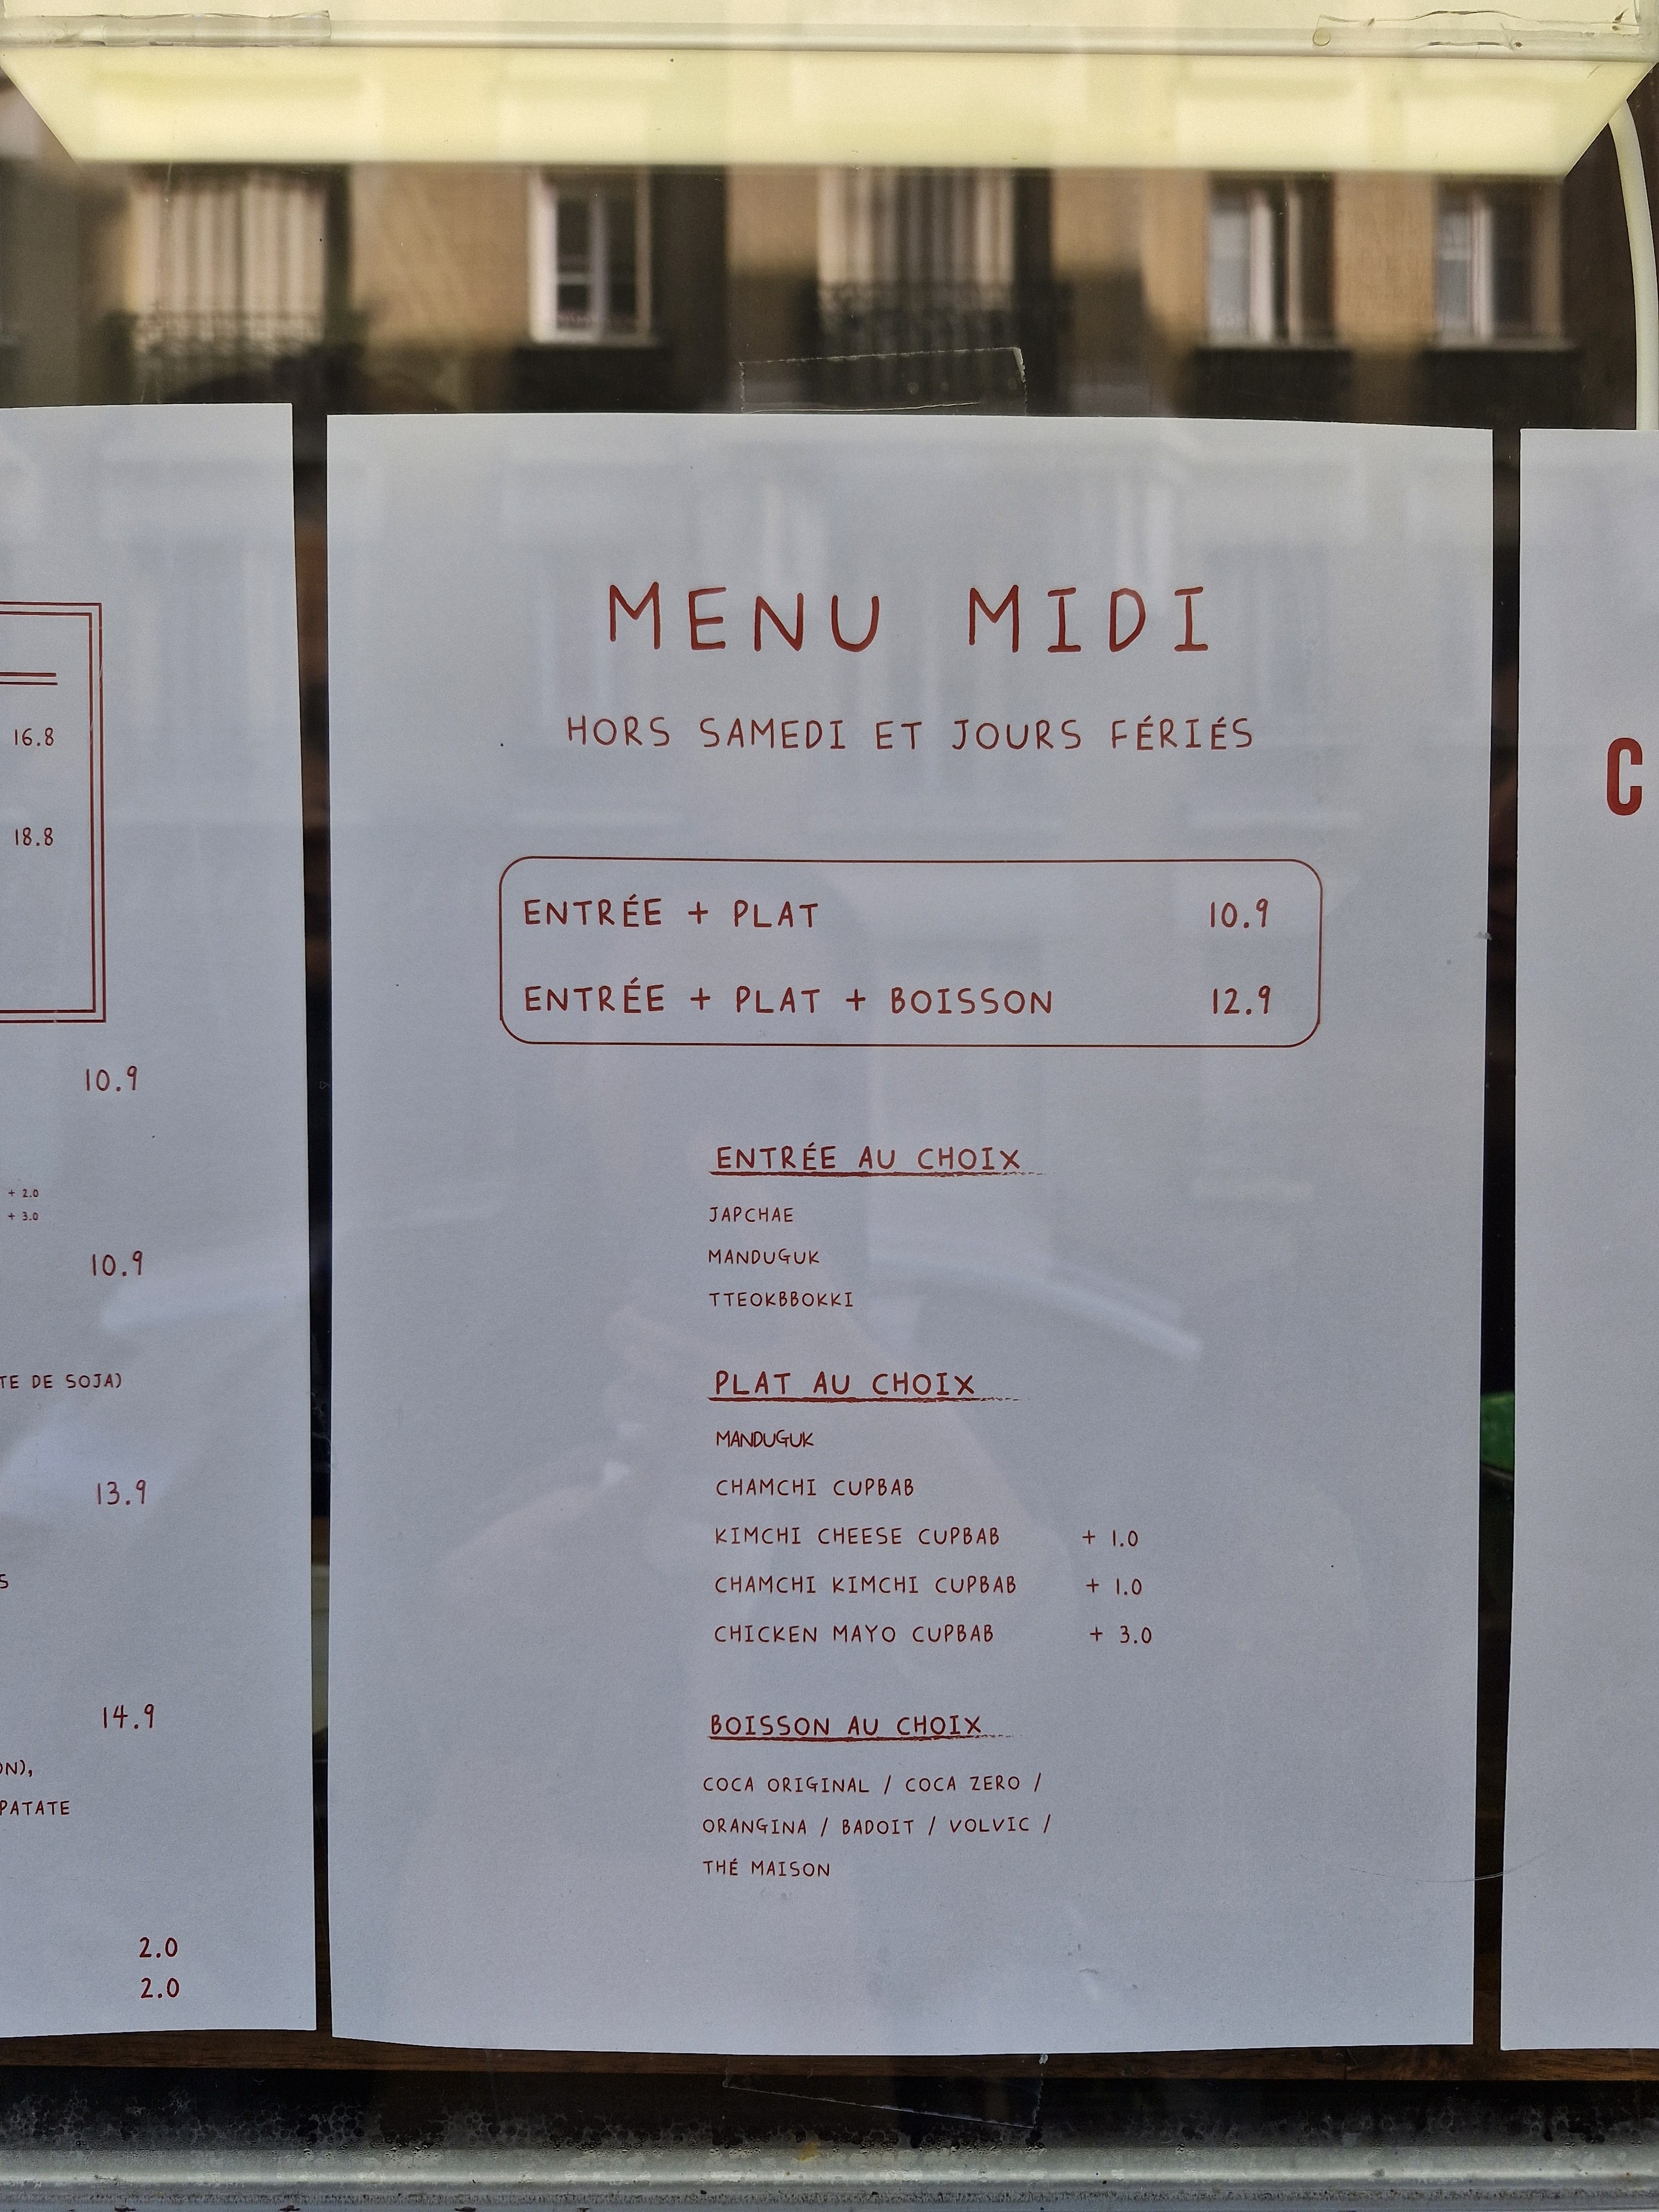 16.8
18.8
10.9
+ 2.0
+ 3.0
10.9
TE DE SOJA)
13.9
S
14.9
ON),
PATATE
2.0
2.0
MENU MIDI
HORS SAMEDI ET JOURS FÉRIÉS
ENTRÉE + PLAT 10.9
ENTRÉE + PLAT + BOISSON 12.9
ENTRÉE AU CHOIX
JAPCHAE
MANDUGUK
TTEOKBBOKKI
PLAT AU CHOIX
MANDUGUK
CHAMCHI CUPBAB
KIMCHI CHEESE CUPBAB + 1.0
CHAMCHI KIMCHI CUPBAB + 1.0
CHICKEN MAYO CUPBAB + 3.0
BOISSON AU CHOIX
COCA ORIGINAL / COCA ZERO /
ORANGINA / BADOIT / VOLVIC /
THÉ MAISON
C